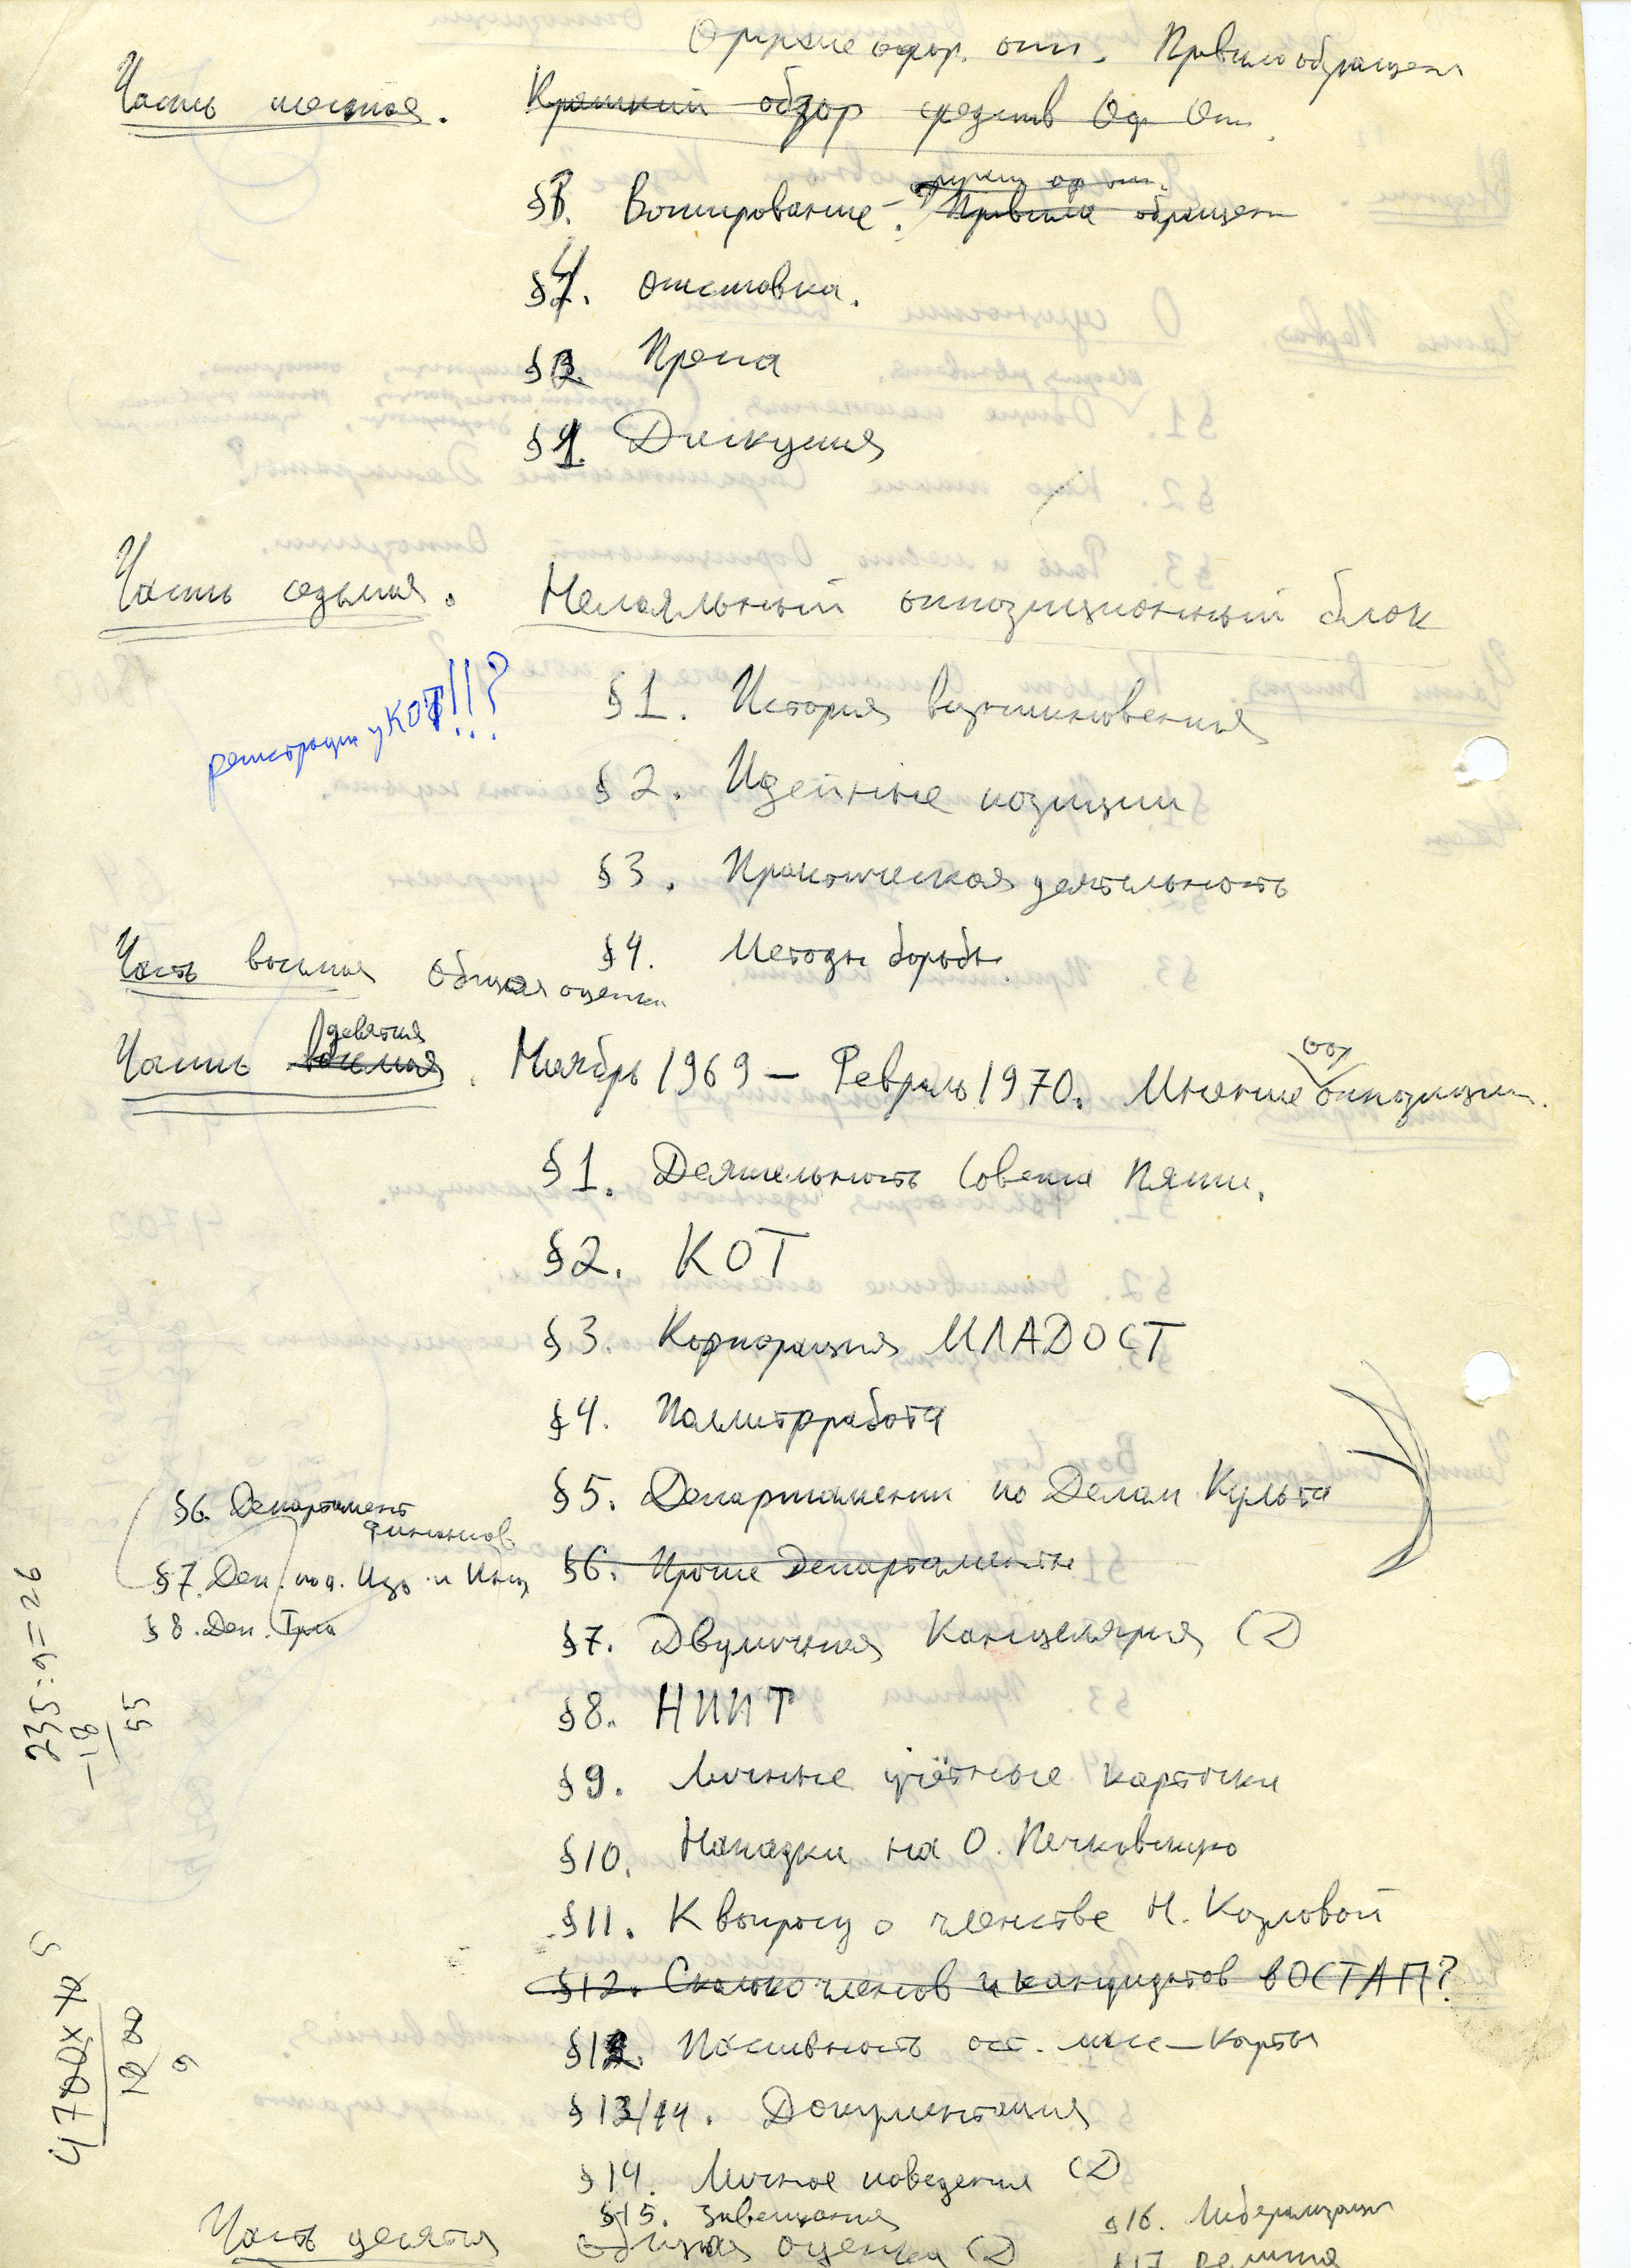 Оружие офор. опп. Правила обращения
Часть шестая. Краткий обзор средств Оф Опп.
§3. Вотирование. Оружие оф опп. Правила обращен
§4. Отставка.
§2. Преса
§1. Дискуссия
Часть седьмая. Нелояльный оппозиционный блок
регистрация у КОТ!!?
§1. История возникновения
§2. Идейные позиции
§3. Практическая деятельность
§4. Методы борьбы.
Часть восьмая Общая оценка
Часть восьмая девятая. Ноябрь 1969 – Февраль 1970. Мнение оппозиции.
§1. Деятельность Совета Пяти.
§2. КОТ
§3. Корпорация МЛАДОСТ
§4. Политработа
§5. Департамент по Делам Культа
§6. Департамент
финансов
§6. Прочие Департаменты
§7. Деп. по д. Изо. и Инц
§7. Двуличная Канцелярия
§8. Деп. Труда
§8. НИИТ
§9. Личные учётные карточки
§10. Нападки на О. Печковскую
§11. К вопросу о членстве Н. Козловой
§12. Сколько членов и кандидатов в ОСТАП?
§12. Пассивность ост. масс – карты
§13/14. Документация
§14. Личное поведение
§15. Завещания
§16. Либерализация
Часть десятая Общая оценка
§17
235:9=26
–18
55
4700